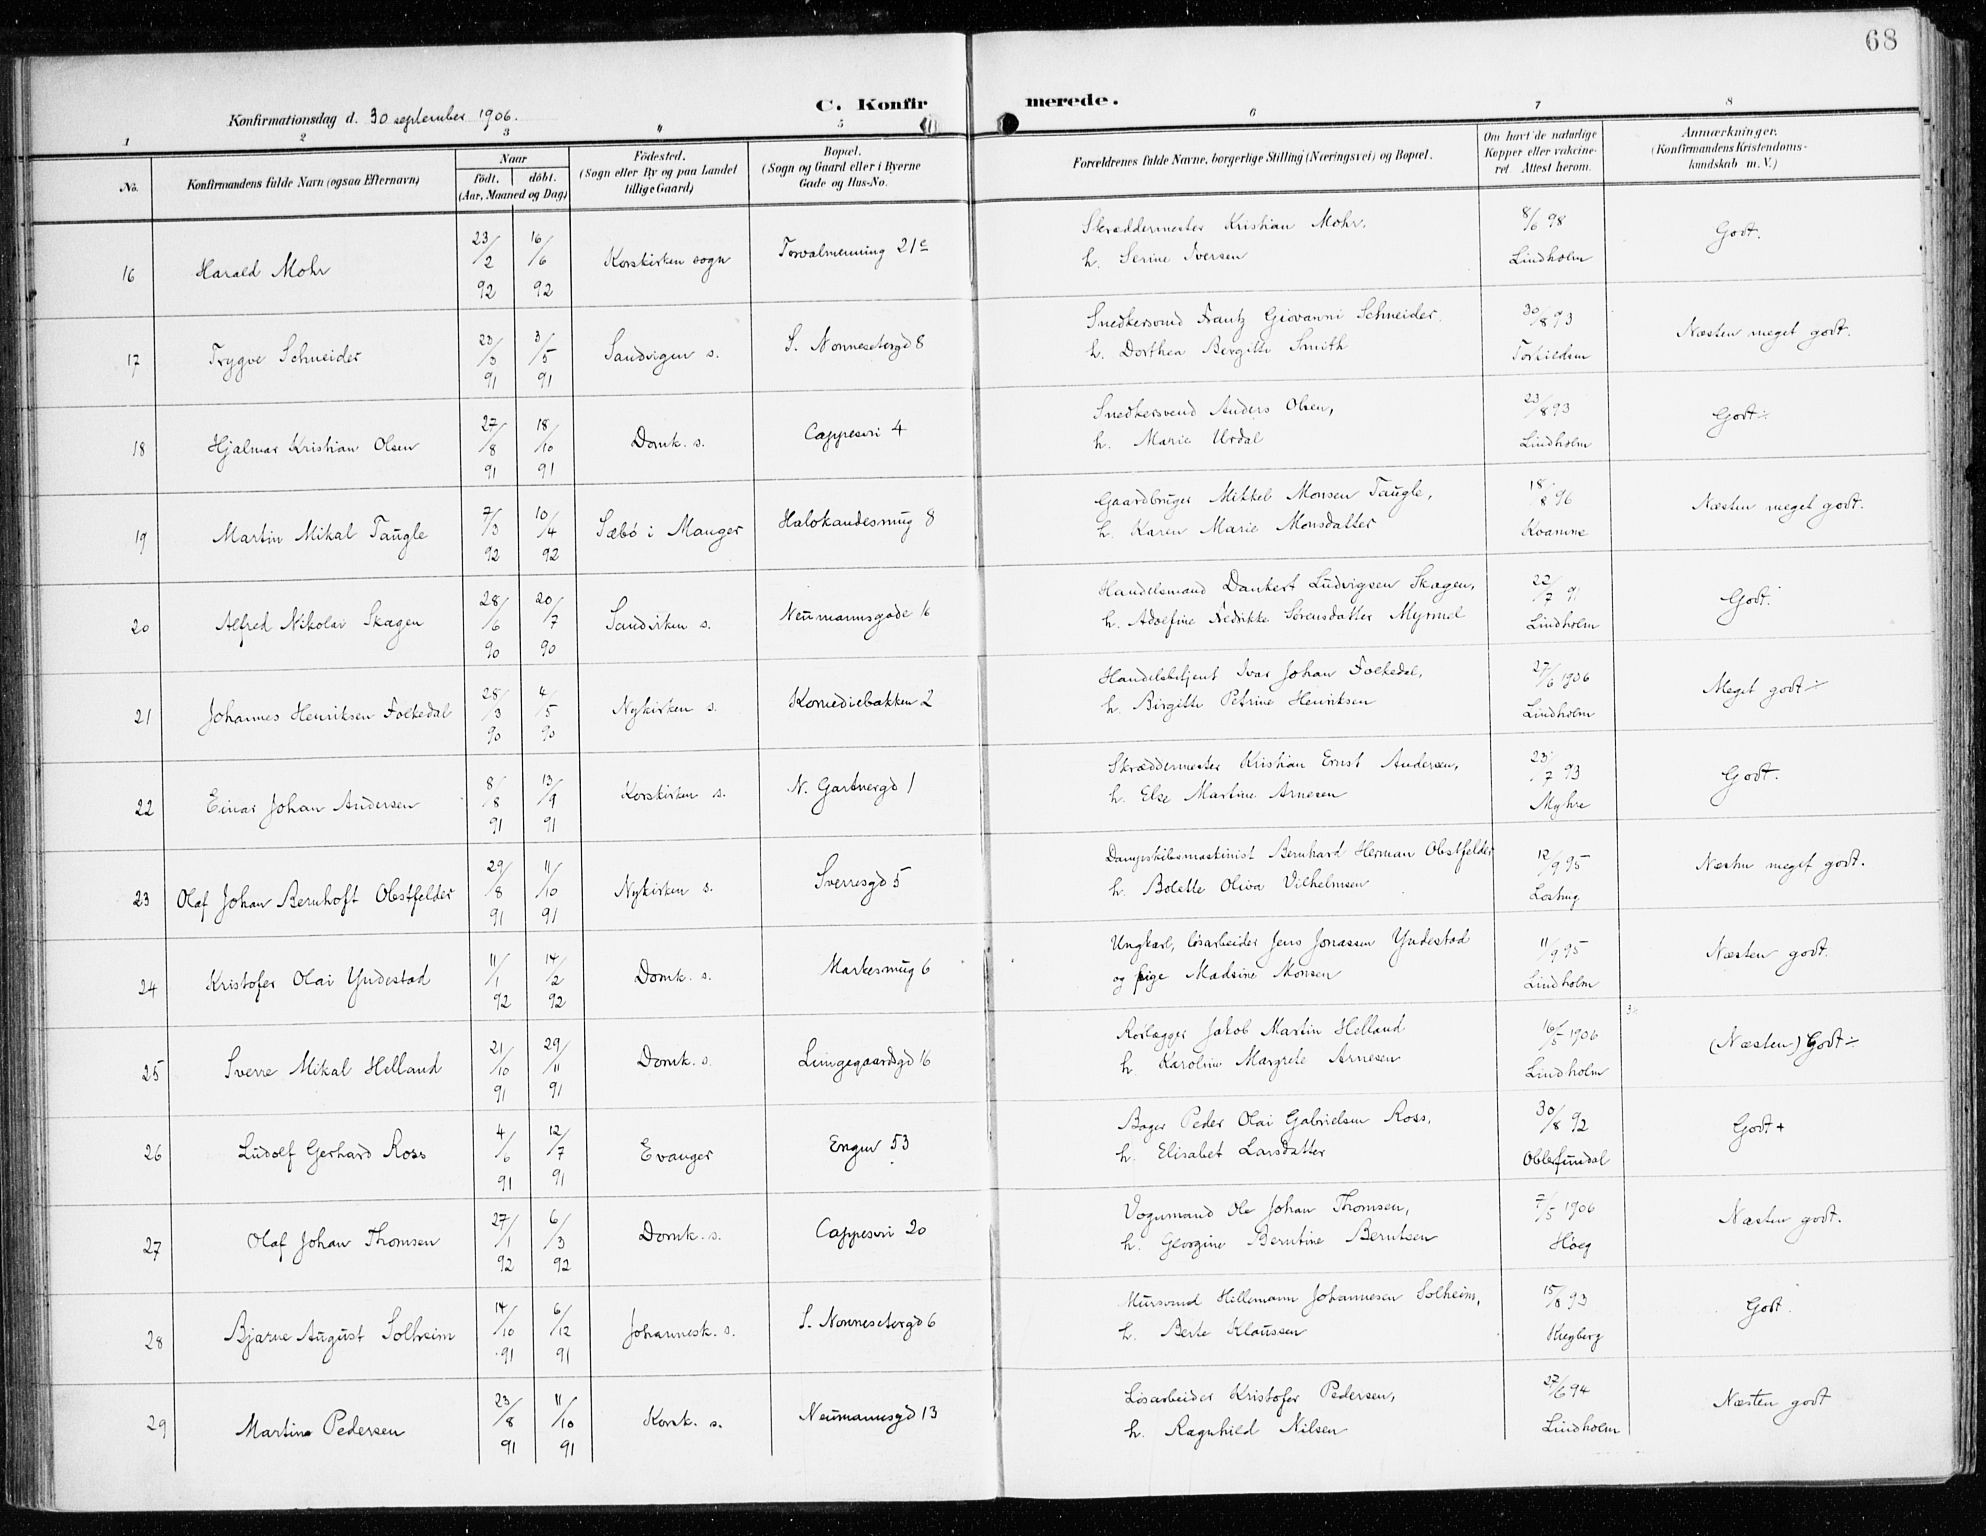 68
Konfirmationsdag d. 30 september 1906.
C. Konfirmerede.
1 2 3 " 5 6 7 8
No.
Konfirmandens fulde Navn (ogsaa Efternavn)
Naar
født. døbt.
(Aar, Maaned og Dag)
Födested.
(Sogn eller By og paa Landet
tillige Gaard)
Bopæl.
(Sogn og Gaard eller i Byerne
Gade og Hus-No.
Forældrenes fulde Navne, borgerlige Stilling (Næringsvei) og Bopæl.
Om havt de naturlige
Kopper eller vakcine-
ret Attest herom.
Anmærkninger.
(Konfirmandens Kristendoms-
kundskab m. V.)
16 Harald Mohr 23/2 92 16/6 92 Korskirken sogn Torvalmenning 21c
Skræddermester Kristian Mohr,
h. Serine Iversen
8/6 98 Lindholm
Godt.
17 Trygve Schneider 23/3 91 3/5 91 Sandvigen s. S. Nonnesetergd 8
Snedkersvend Frantz Giovanni Schneider.
h. Dorthea Bergitte Smith
30/8 93 Torkildsen
Næsten meget godt.
18 Hjalmar Kristian Olsen 27/8 91 18/10 91 Domk. s. Cappesvi 4
Snedkersvend Anders Olsen,
h. Marie Urdal
23/8 93 Lindholm
Godt ÷
19 Martin Mikal Taugle 7/3 92 10/4 92 Sæbö i Manger Halvkandesmug 8
Gaardbruger Mikkel Monsen Taugle,
h. Karen Marie Monsdatter
18/8 96 Kvamme
Næsten meget godt.
20 Alfred Nikolai Skagen 28/6 90 20/7 90 Sandvken s. Neumannsgade 16
Handelsmand Dankert Ludvigsen Skagen,
h. Adolfine Fredrikke Sörensdatter Myrmel
22/7 91 Lindholm
Godt.
21 Johannes Henriksen Folkedal 28/3 90 4/5 90 Nykirken s. Komediebakken 2
Handelsbetjent Ivar Johan Folkedal,
h. Birgitte Petrine Henriksen
27/6 1906 Lindholm
Meget godt ÷
22 Einar Johan Andersen 8/8 91 13/9 91 Korskirken s. N. Gartnergd 1
Skræddermester Kristian Ernst Andersen,
h. Else Martine Arnesen
23/7 93 Myhre
Godt.
23 Olaf Johan Bernhoft Obstfelder 29/8 91 11/10 91 Nykirken s. Sverresgd 5
Dampskibsmaskinist Bernhard Herman Obstfelder
h. Bolette Oliva Vilhelmsen
12/9 95
Næsten meget godt.
24 Kristofer Olai Yndestad 11/1 92 14/2 92 Domk. s. Markesmug 6
Ungkarl, løsarbeider Jens Jonassen Yndestad
og pige Madsine Monsen
11/9 95 Lindholm
Næsten godt.
25 Sverre Mikal Helland 21/10 91 29/11 91 Domk. s. Lungegaardsgd 16
Rørlægger Jakob Martin Helland
h. Karoline Margrete Arnesen
16/5 1906 Lindholm
(Næsten) Godt ÷
26 Ludolf Gerhard Ross 4/6 91 12/7 91 Evanger Engen 53
Bager Peder Olai Gabrielsen Ross,
h. Elisabet Larsdatter
30/8 92
Godt +
27 Olaf Johan Thomsen 27/1 92 6/3 92 Domk. s. Cappesvi 20
Vognmand Ole Johan Thomsen,
h. Georgine Berntine Berntsen
7/5 1906 Høeg
Næsten godt.
28 Bjarne August Solheim 14/10 91 6/12 91 Johannesk. s. S. Nonnesetergd 6
Mursvend Hellemann Johannesen Solheim,
h. Berte Klaussen
15/8 93
Godt.
29 Martin Pedersen 23/8 91 11/10 91 Korsk. s. Neumannsgd 13
Løsarbeider Kristofer Pedersen,
h. Ragnhild Nilsen
27/6 94 Lindholm
Næsten godt